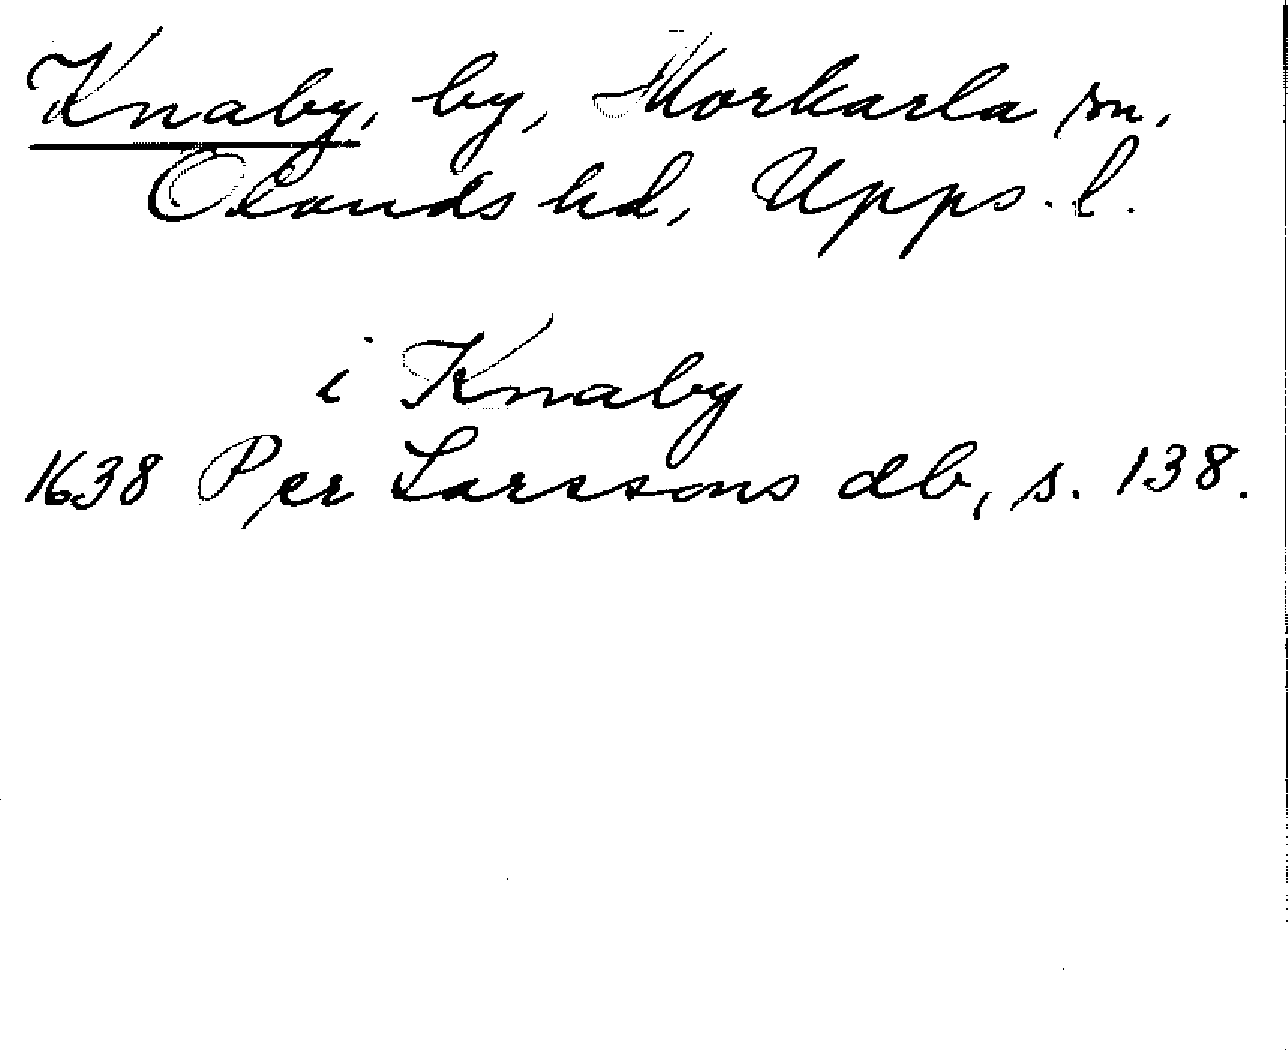 Knaby, by, Morkarla sn,
Olands hd, Upps. l.
i Knaby
1638 Per Larssons db, s. 138.